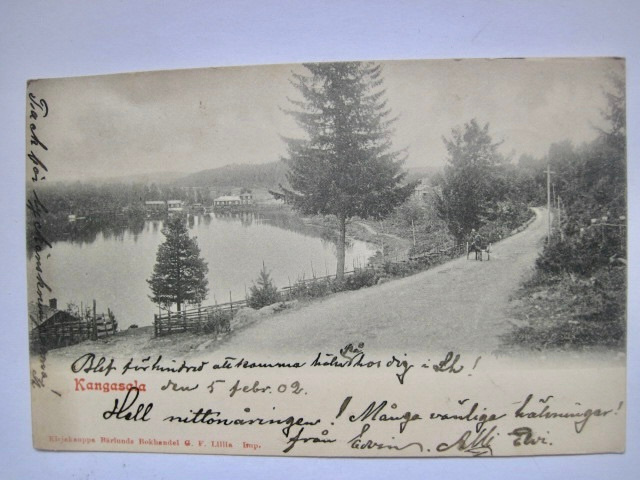 Tack för lyckönskningarne
Blef förhindrad att komma hälsa på hos dig i Lh!
Kangasala den 5 febr. 02.
Hell nittonåringen! Många vänliga hälsningar!
från Edvin. Elvi.
Bokhandel G. F. Lillia Imp.